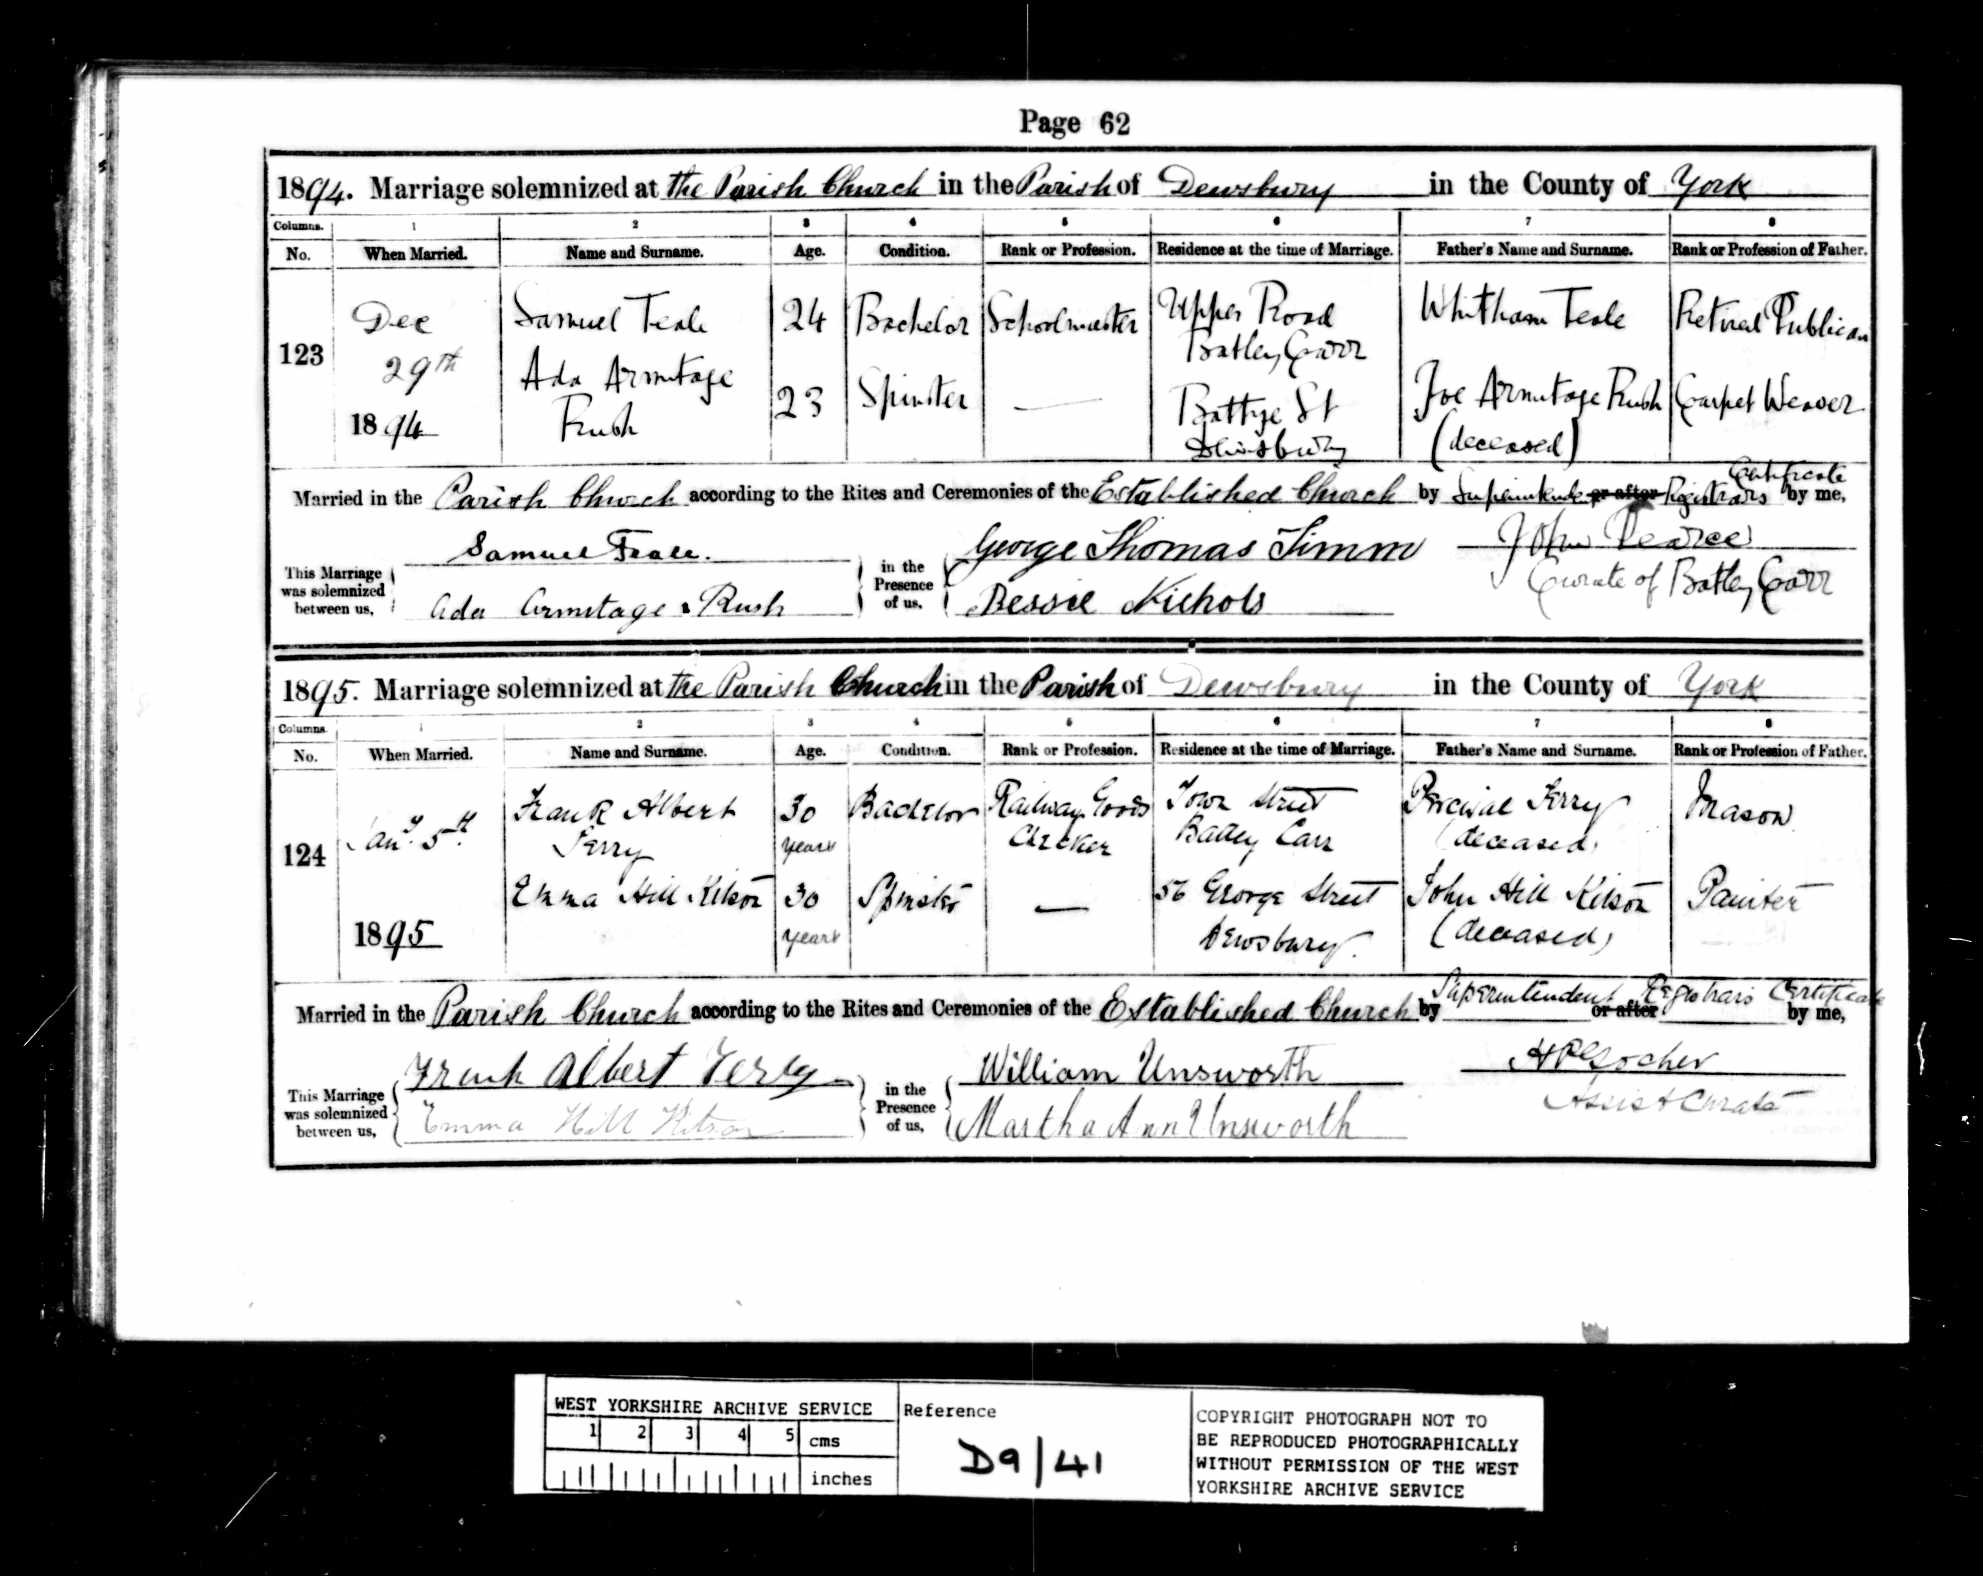 Page 62
1894. Marriage solemnized at the Parish Church in the Parish of Dewsbury in the County of York
Columns. 1 2 3 4 5 6 7 8
No. When Married. Name and Surname. Age. Condition. Rank or Profession. Residence at the time of Marriage. Father's Name and Surname. Rank or Profession of Father.
123 Dec 29th 1894 Samuel Teale 24 Bachelor Schoolmaster Upper Road Batley Carr Whitham Teale Retired Publican
Ada Armitage Rush 23 Spinster — Battye St Dewsbury Joe Armitage Rush (deceased) Carpet Weaver
Married in the Parish Church according to the Rites and Ceremonies of the Established Church by Superintendent or after Registrars Certificate by me,
This Marriage was solemnized between us, Samuel Teale. Ada Armitage Rush in the Presence of us, George Thomas Timm Bessie Nichols John Pearce Curate of Batley Carr
1895. Marriage solemnized at the Parish Church in the Parish of Dewsbury in the County of York
Columns. 1 2 3 4 5 6 7 8
No. When Married. Name and Surname. Age. Condition. Rank or Profession. Residence at the time of Marriage. Father's Name and Surname. Rank or Profession of Father.
124 Jany. 5th. 1895 Frank Albert Terry 30 years Bachelor Railway Goods Checker Town Street Batley Carr Percival Terry (deceased) Mason
Emma Hill Kitson 30 years Spinster — 56 George Street Dewsbury. John Hill Kitson (deceased) Painter
Married in the Parish Church according to the Rites and Ceremonies of the Established Church by Superintendent or after Registrars Certificate by me,
This Marriage was solemnized between us, Frank Albert Terry Emma Hill Kitson in the Presence of us, William Unsworth Martha Ann Unsworth Assist Curate
WEST YORKSHIRE ARCHIVE SERVICE
1 2 3 4 5 cms
inches
Reference
D9/41
COPYRIGHT PHOTOGRAPH NOT TO
BE REPRODUCED PHOTOGRAPHICALLY
WITHOUT PERMISSION OF THE WEST
YORKSHIRE ARCHIVE SERVICE